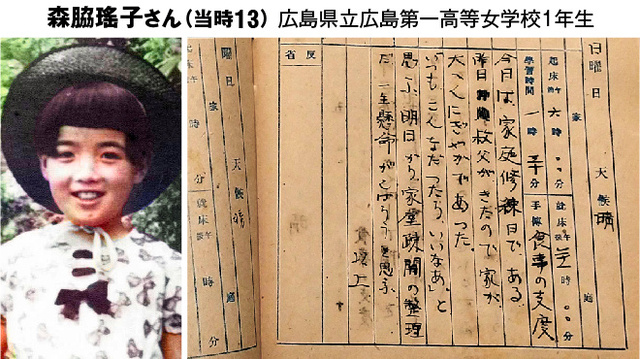 森脇瑤子さん（当時13）広島県立広島第一高等女学校1年生
日曜日 天候 晴
起床 六時〇〇分 就床 時〇〇分
学習時間 一時三十分 食事の支度
今日は、家庭修練日である。
昨日、叔父がきたので、家が、
大へんにぎやかであった。
「いつもこんなだったら、いいなあ」と
思ふ。明日から、家屋疎開の整理
だ。一生懸命がんばらうと思ふ。
反省
曜日 天候 晴
時 分
時 分